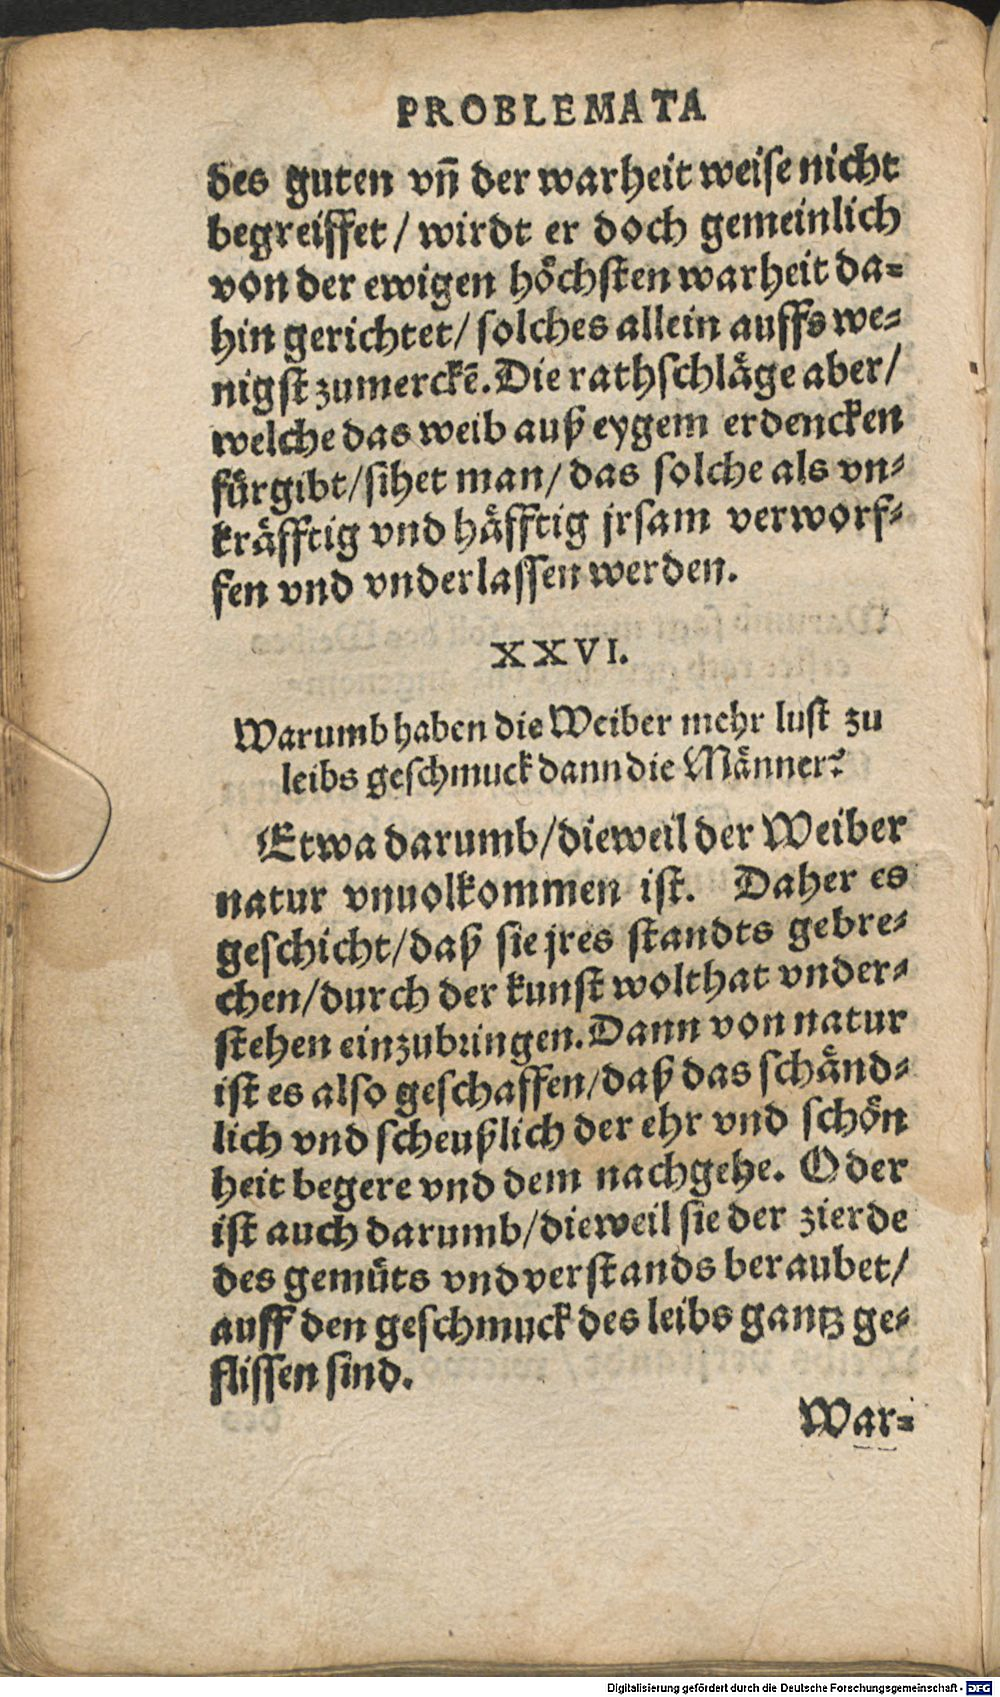 PROBLEMATA
des guten vñ der warheit weise nicht
begreiffet / wirdt er doch gemeinlich
von der ewigen höchsten warheit da=
hin gerichtet / solches allein auffs we=
nigst zumerckẽ. Die rathschläge aber /
welche das weib auß eygem erdencken
fürgibt / sihet man / das solche als vn=
kräfftig vnd häfftig jrsam verworf=
fen vnd vnderlassen werden.
XXVI.
Warumb haben die Weiber mehr lust zu
leibs geschmuck dann die Männer?
Etwa darumb / dieweil der Weiber
natur vnuolkommen ist. Daher es
geschicht / daß sie jres standts gebre=
chen / durch der kunst wolthat vnder=
stehen einzubringen. Dann von natur
ist es also geschaffen / daß das schänd=
lich vnd scheußlich der ehr vnd schön
heit begere vnd dem nachgehe. Oder
ist auch darumb / dieweil sie der zierde
des gemüts vnd verstands beraubet /
auff den geschmuck des leibs gantz ge=
flissen sind.
War=
Digitalisierung gefördert durch die Deutsche Forschungsgemeinschaft - DFG